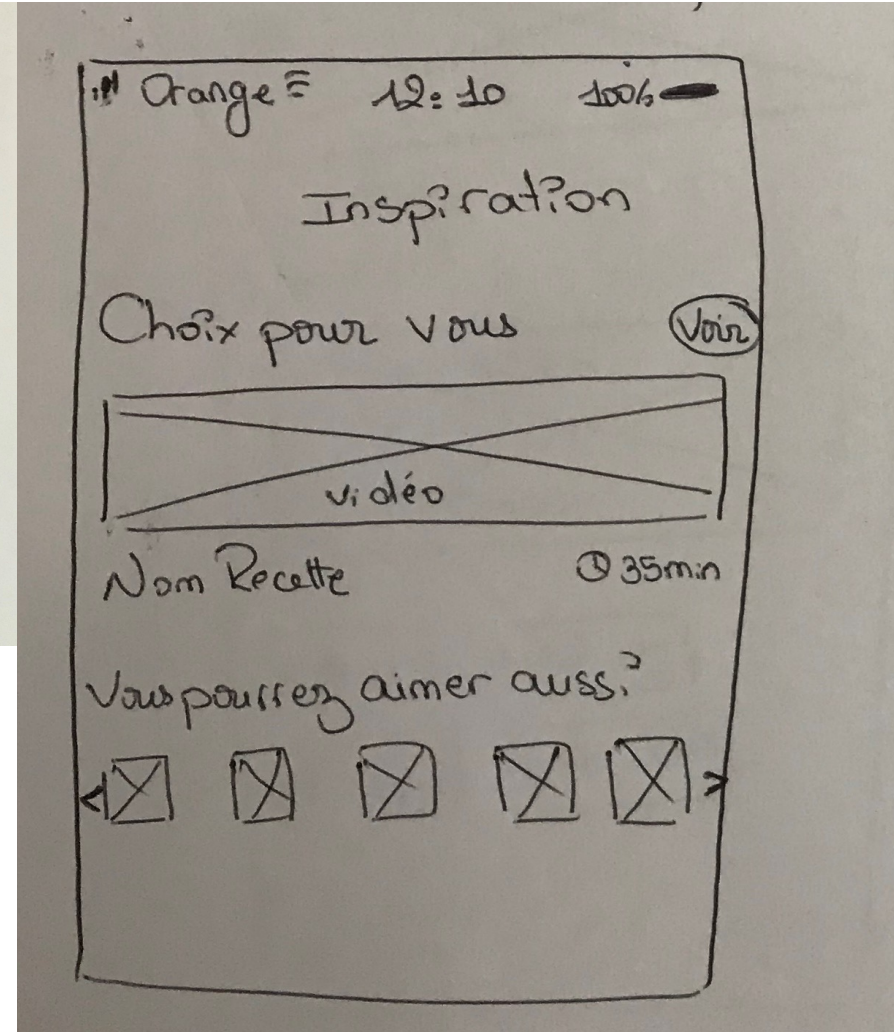 Orange 12:10 100%
Inspiration
Choix pour vous Voir
vidéo
Nom Recette 35min
Vous pourrez aimer aussi